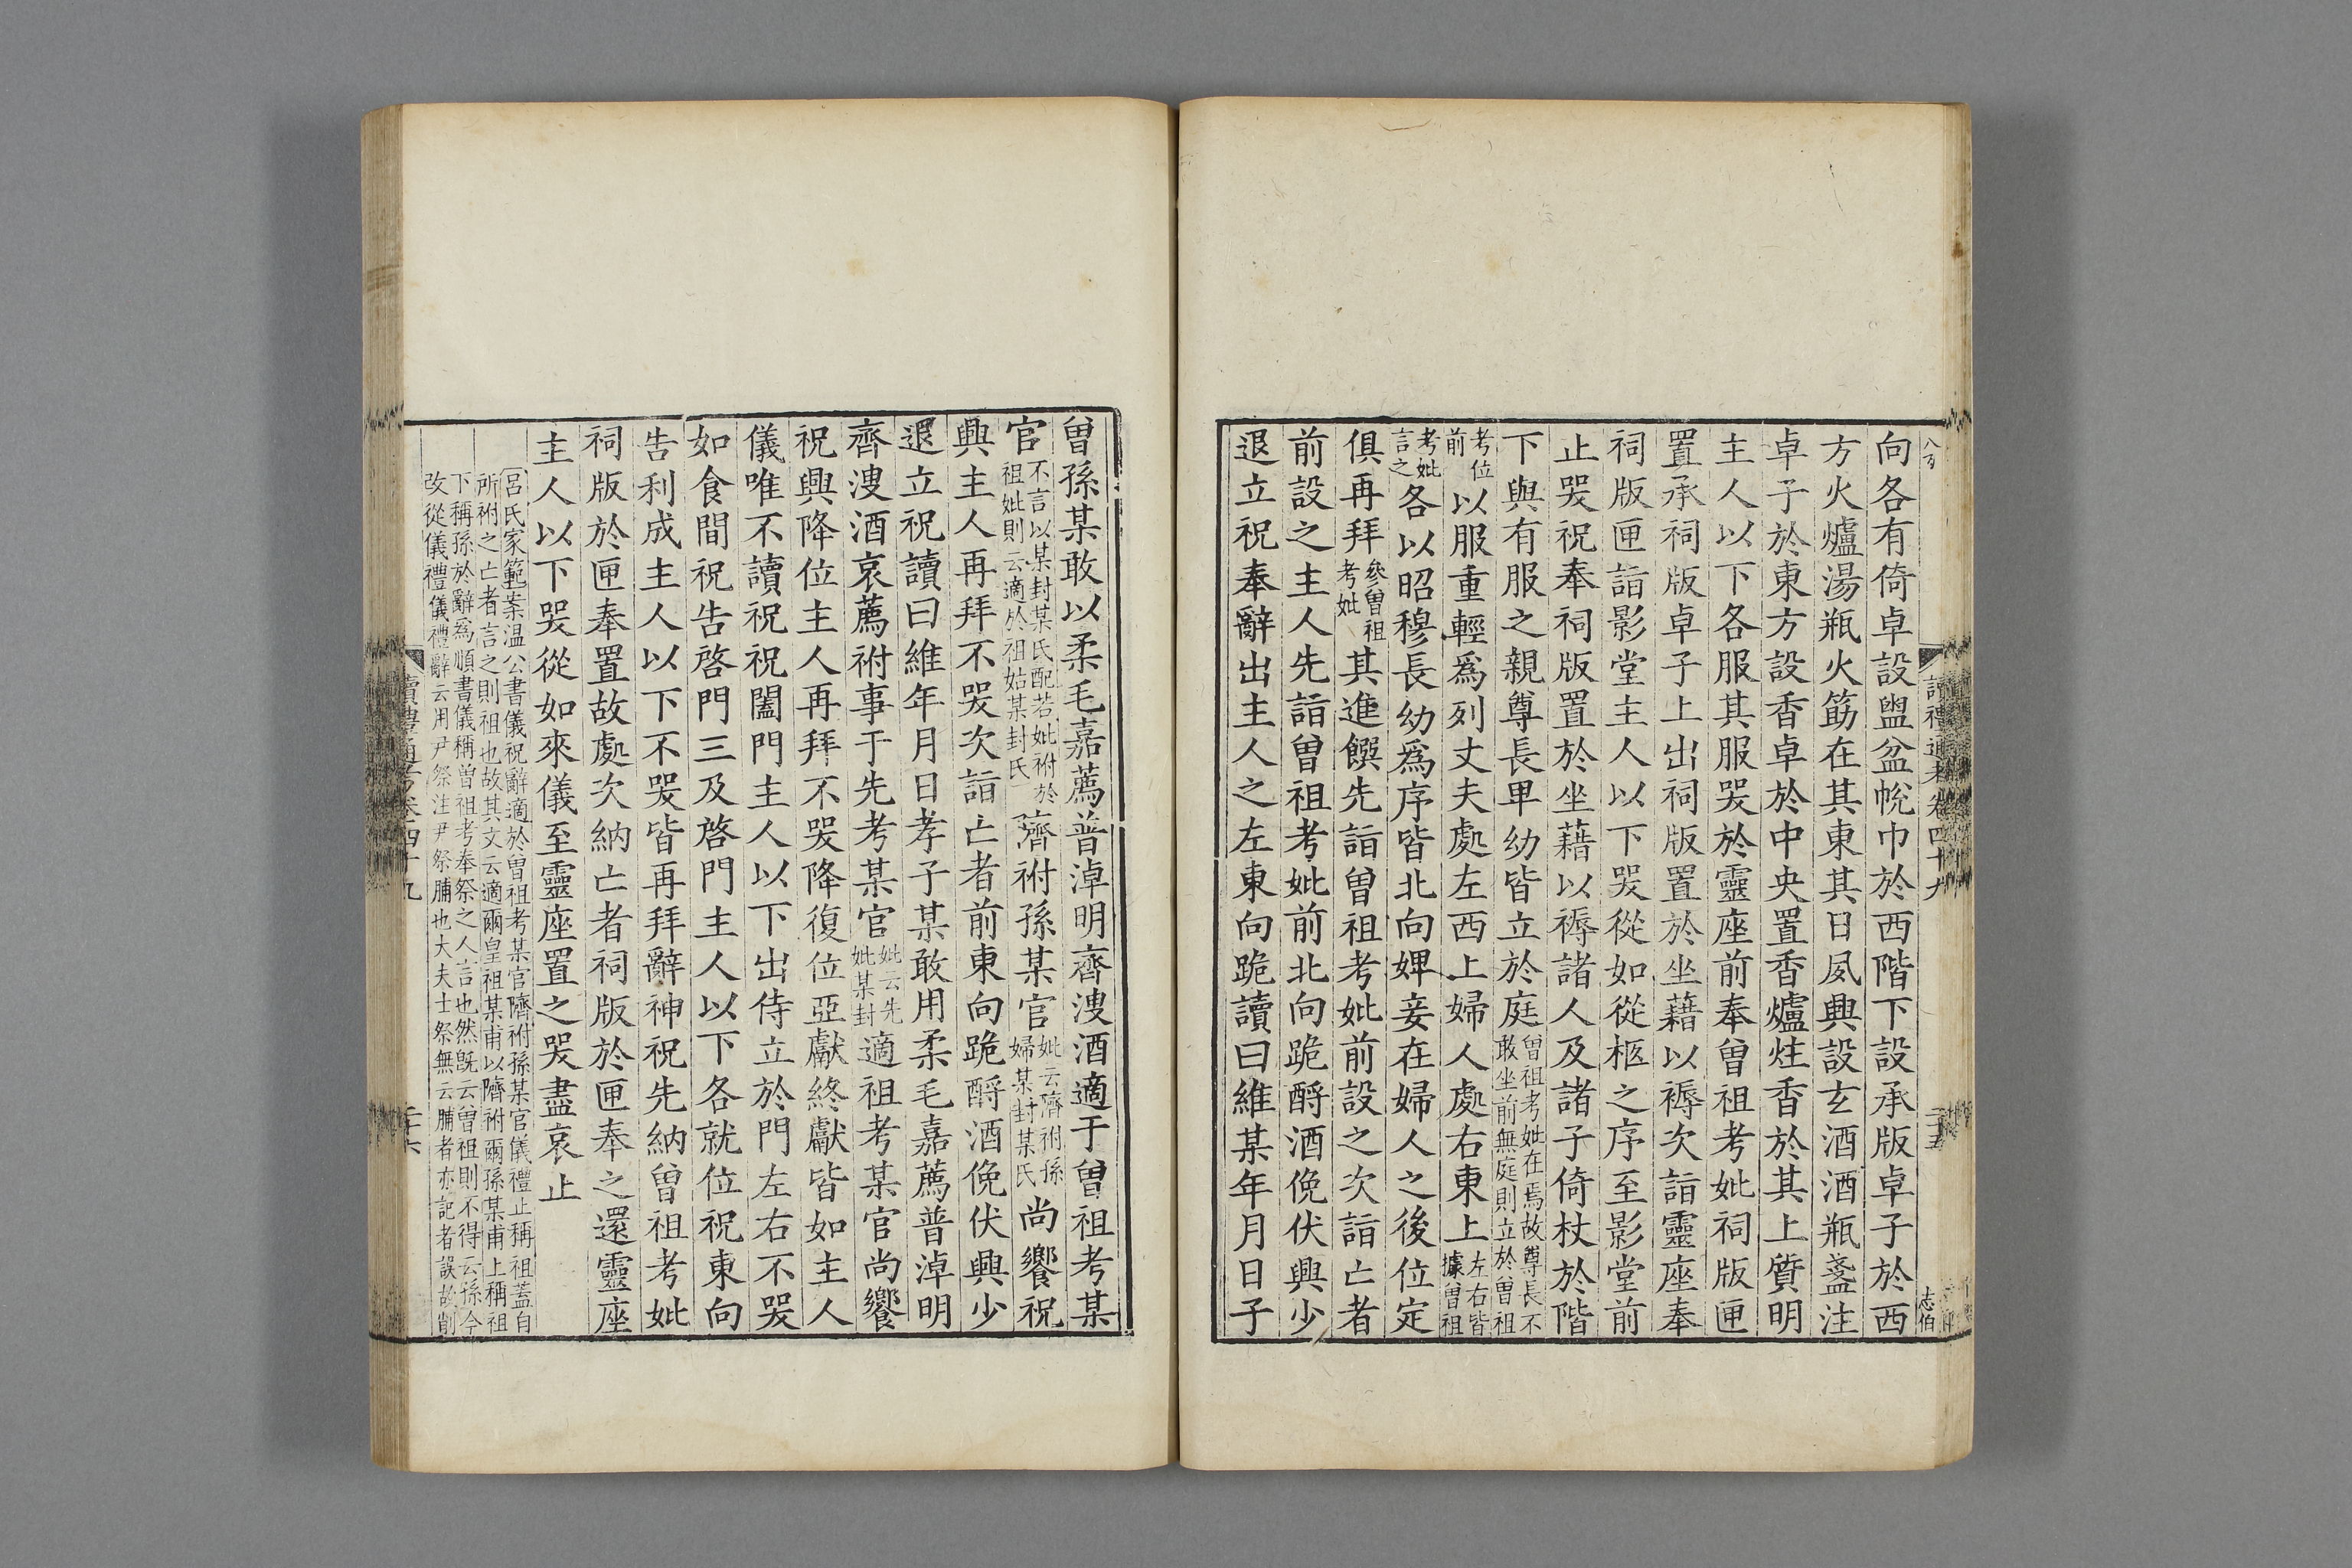 向各有倚卓設盥盆帨巾於西階下設承版卓子於西
方火爐湯瓶火筯在其東其日夙興設玄酒酒瓶盞注
卓子於東方設香卓於中央置香爐炷香於其上質明
主人以下各服其服哭於靈座前奉曾祖考妣祠版匣
置承祠版卓子上出祠版置於坐藉以褥次詣靈座奉
祠版匣詣影堂主人以下哭從如從柩之序至影堂前
止哭祝奉祠版置於坐藉以褥諸人及諸子倚杖於階
下與有服之親尊長卑幼皆立於庭曾祖考妣在焉故尊長不敢坐前無庭則立於曾祖
考位前以服重輕爲列丈夫處左西上婦人處右東上左右皆據曾祖
考妣言之各以昭穆長幼爲序皆北向婢妾在婦人之後位定
俱再拜參曾祖考妣其進饌先詣曾祖考妣前設之次詣亡者
前設之主人先詣曾祖考妣前北向跪酹酒俛伏興少
退立祝奉辭出主人之左東向跪讀曰維某年月日子
讀禮通考卷四十九
二十五
志伯
曾孫某敢以柔毛嘉薦普淖明齊溲酒適于曾祖考某
官不言以某封某氏配若妣祔於祖妣則云適於祖姑某封氏隮祔孫某官妣云隮祔孫婦某封某氏尚饗祝
興主人再拜不哭次詣亡者前東向跪酹酒俛伏興少
退立祝讀曰維年月日孝子某敢用柔毛嘉薦普淖明
齊溲酒哀薦祔事于先考某官妣云先妣某封適祖考某官尚饗
祝興降位主人再拜不哭降復位亞獻終獻皆如主人
儀唯不讀祝祝闔門主人以下出侍立於門左右不哭
如食間祝告啓門三及啓門主人以下各就位祝東向
告利成主人以下不哭皆再拜辭神祝先納曾祖考妣
祠版於匣奉置故處次納亡者祠版於匣奉之還靈座
主人以下哭從如來儀至靈座置之哭盡哀止
呂氏家範案温公書儀祝辭適於曾祖考某官隮祔孫某官儀禮止稱祖蓋自
所祔之亡者言之則祖也故其文云適爾皇祖某甫以隮祔爾孫某甫上稱祖
下稱孫於辭爲順書儀稱曾祖考奉祭之人言也然既云曾祖則不得云孫今
改從儀禮儀禮辭云用尹祭注尹祭脯也大夫士祭無云脯者亦記者誤故削
讀禮通考卷四十九
二十六